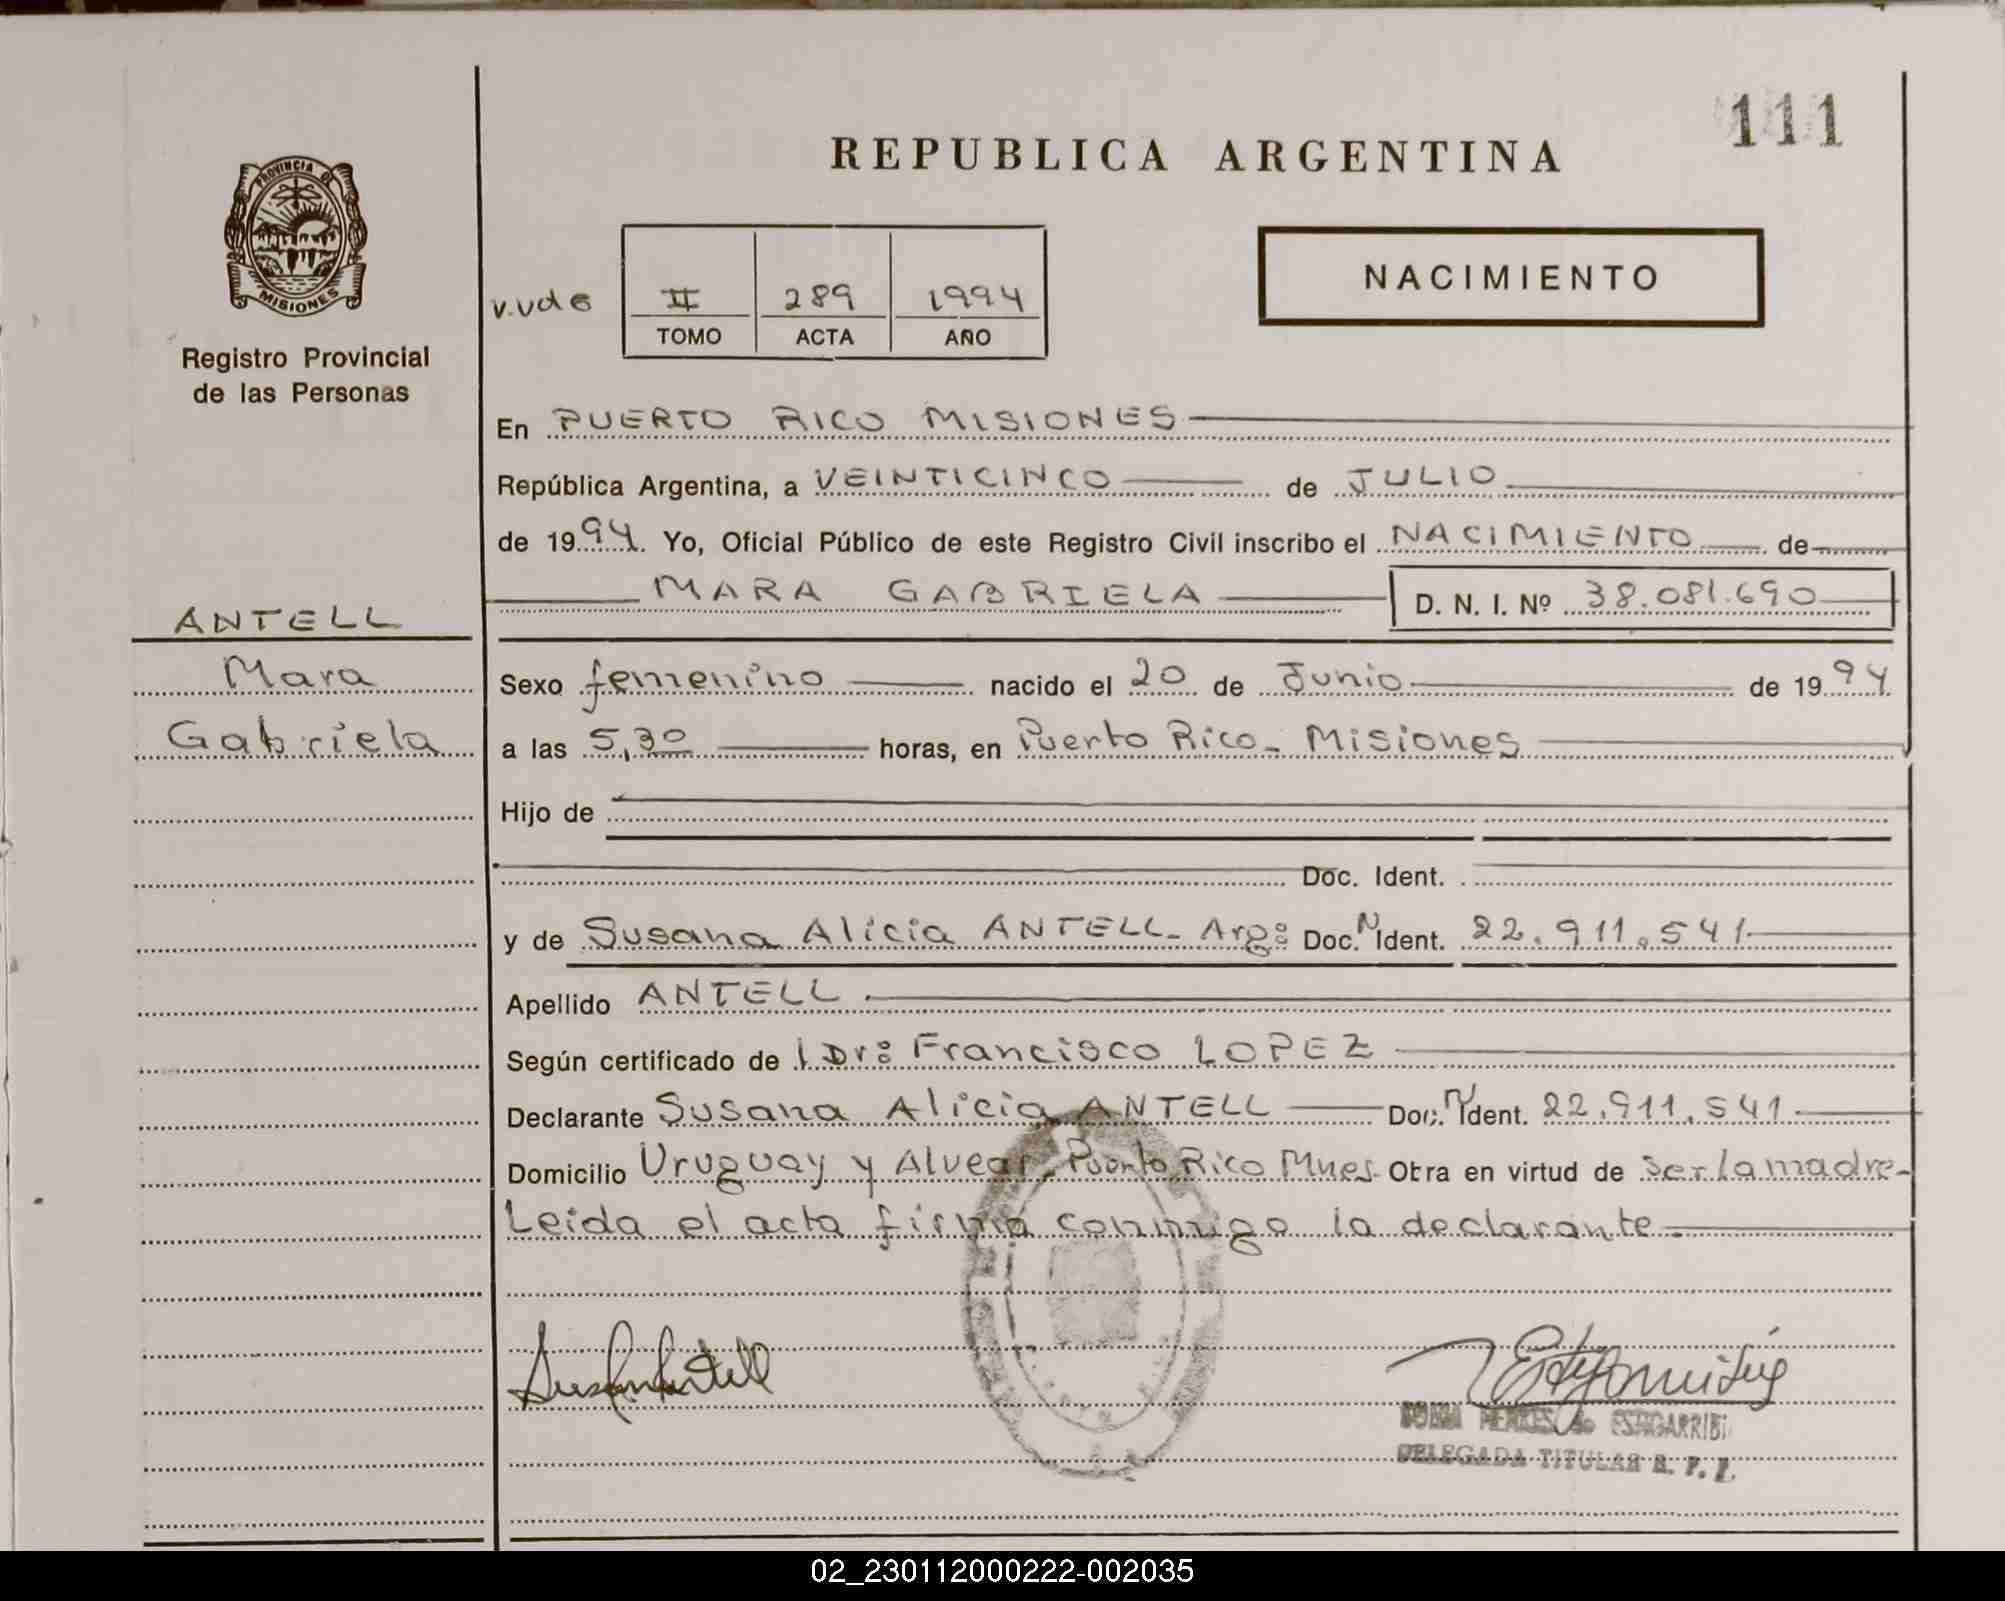 111
REPUBLICA ARGENTINA
PROVINCIA DE
MISIONES
Registro Provincial
de las Personas
II 289 1994
TOMO ACTA AÑO
NACIMIENTO
En PUERTO RICO MISIONES
República Argentina, a VEINTICINCO de JULIO
de 1994. Yo, Oficial Público de este Registro Civil inscribo el NACIMIENTO de
MARA GABRIELA D. N. I. Nº 38.081.690
ANTELL
Mara
Gabriela
Sexo femenino nacido el 20 de Junio de 1994
a las 5,30 horas, en Puerto Rico - Misiones
Hijo de
Doc. Ident.
y de Susana Alicia ANTELL - Argº Doc. N Ident. 22.911.541
Apellido ANTELL.
Según certificado de l Drº Francisco LOPEZ
Declarante Susana Alicia ANTELL Doc. N Ident. 22.911.541
Domicilio Uruguay y Alvear - Puerto Rico Mnes - Otra en virtud de ser la madre -
Leida el acta firma conmigo la declarante
DE ESTIGARRIBI
DELEGADA TITULAR R. P. P.
02_230112000222-002035